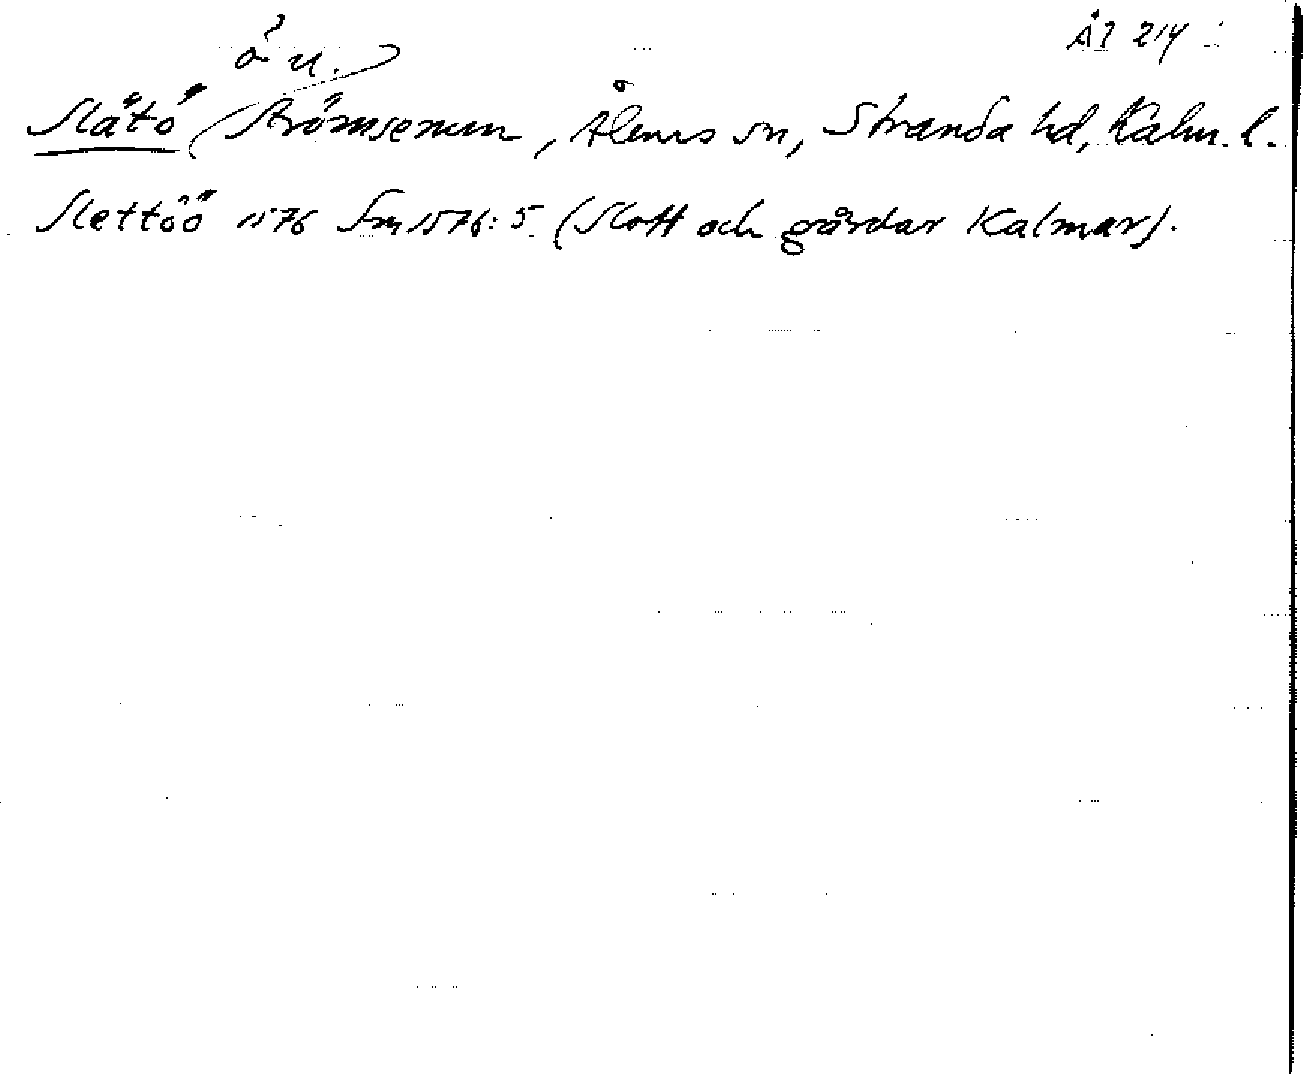 ÅI 214
ö u.
Slätö Strömserum, Ålems sn, Stranda hd, Kalm. l.
Slettöö 1576 Sm 1576:5 (Slott och gårdar Kalmar).